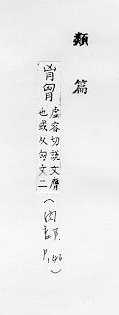 類篇
胷虛容切說文膺
也或从匈文二
(肉部 P.146)